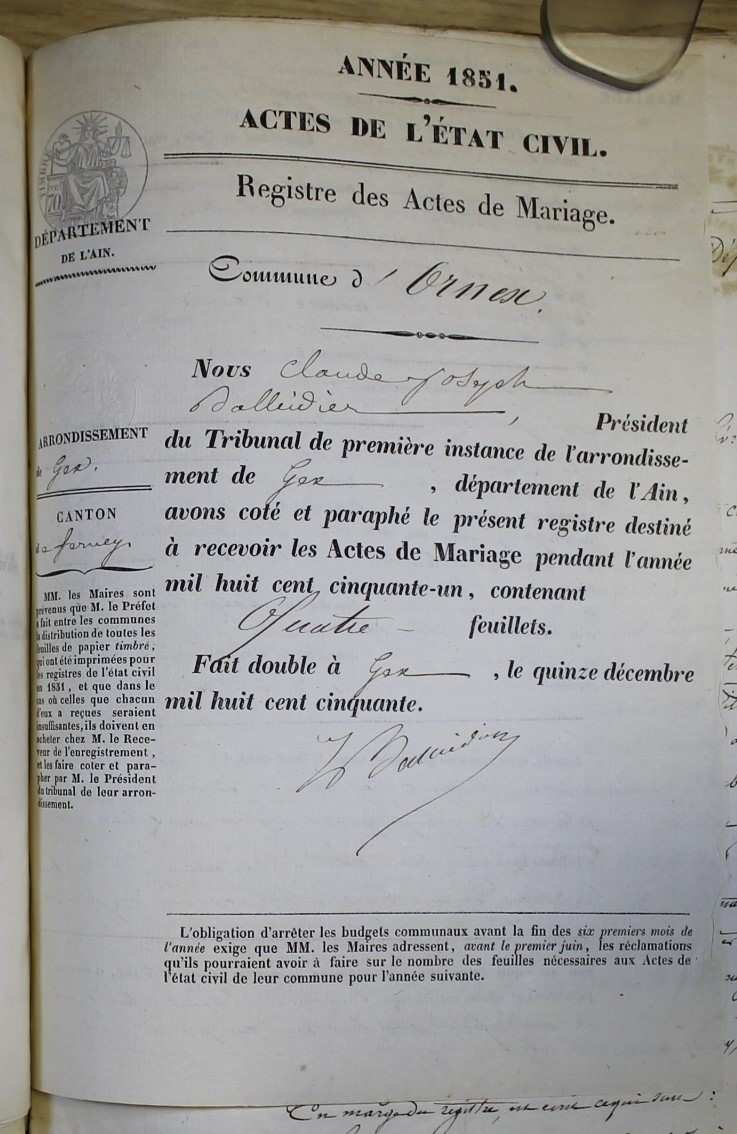 ANNÉE 1851.
ACTES DE L'ÉTAT CIVIL.
Registre des Actes de Mariage.
DÉPARTEMENT
DE L'AIN.
Commune d'Ornex.
Nous Claude Joseph
Balleidier, Président
du Tribunal de première instance de l'arrondisse-
ment de Gex, département de l'Ain,
avons coté et paraphé le présent registre destiné
à recevoir les Actes de Mariage pendant l'année
mil huit cent cinquante-un, contenant
Quatre feuillets.
Fait double à Gex, le quinze décembre
mil huit cent cinquante.
Balleidier
ARRONDISSEMENT
de Gex.
CANTON
de ferney
MM. les Maires sont
prévenus que M. le Préfet
a fait entre les communes
la distribution de toutes les
feuilles de papier timbré,
qui ont été imprimées pour
les registres de l'état civil
en 1851, et que dans le
cas où celles que chacun
d'eux a reçues seraient
insuffisantes, ils doivent en
acheter chez M. le Rece-
veur de l'enregistrement,
et les faire coter et para-
pher par M. le Président
du tribunal de leur arron-
dissement.
L'obligation d'arrêter les budgets communaux avant la fin des six premiers mois de
l'année exige que MM. les Maires adressent, avant le premier juin, les réclamations
qu'ils pourraient avoir à faire sur le nombre des feuilles nécessaires aux Actes de
l'état civil de leur commune pour l'année suivante.
En marge du registre, est écrit ce qui suit :